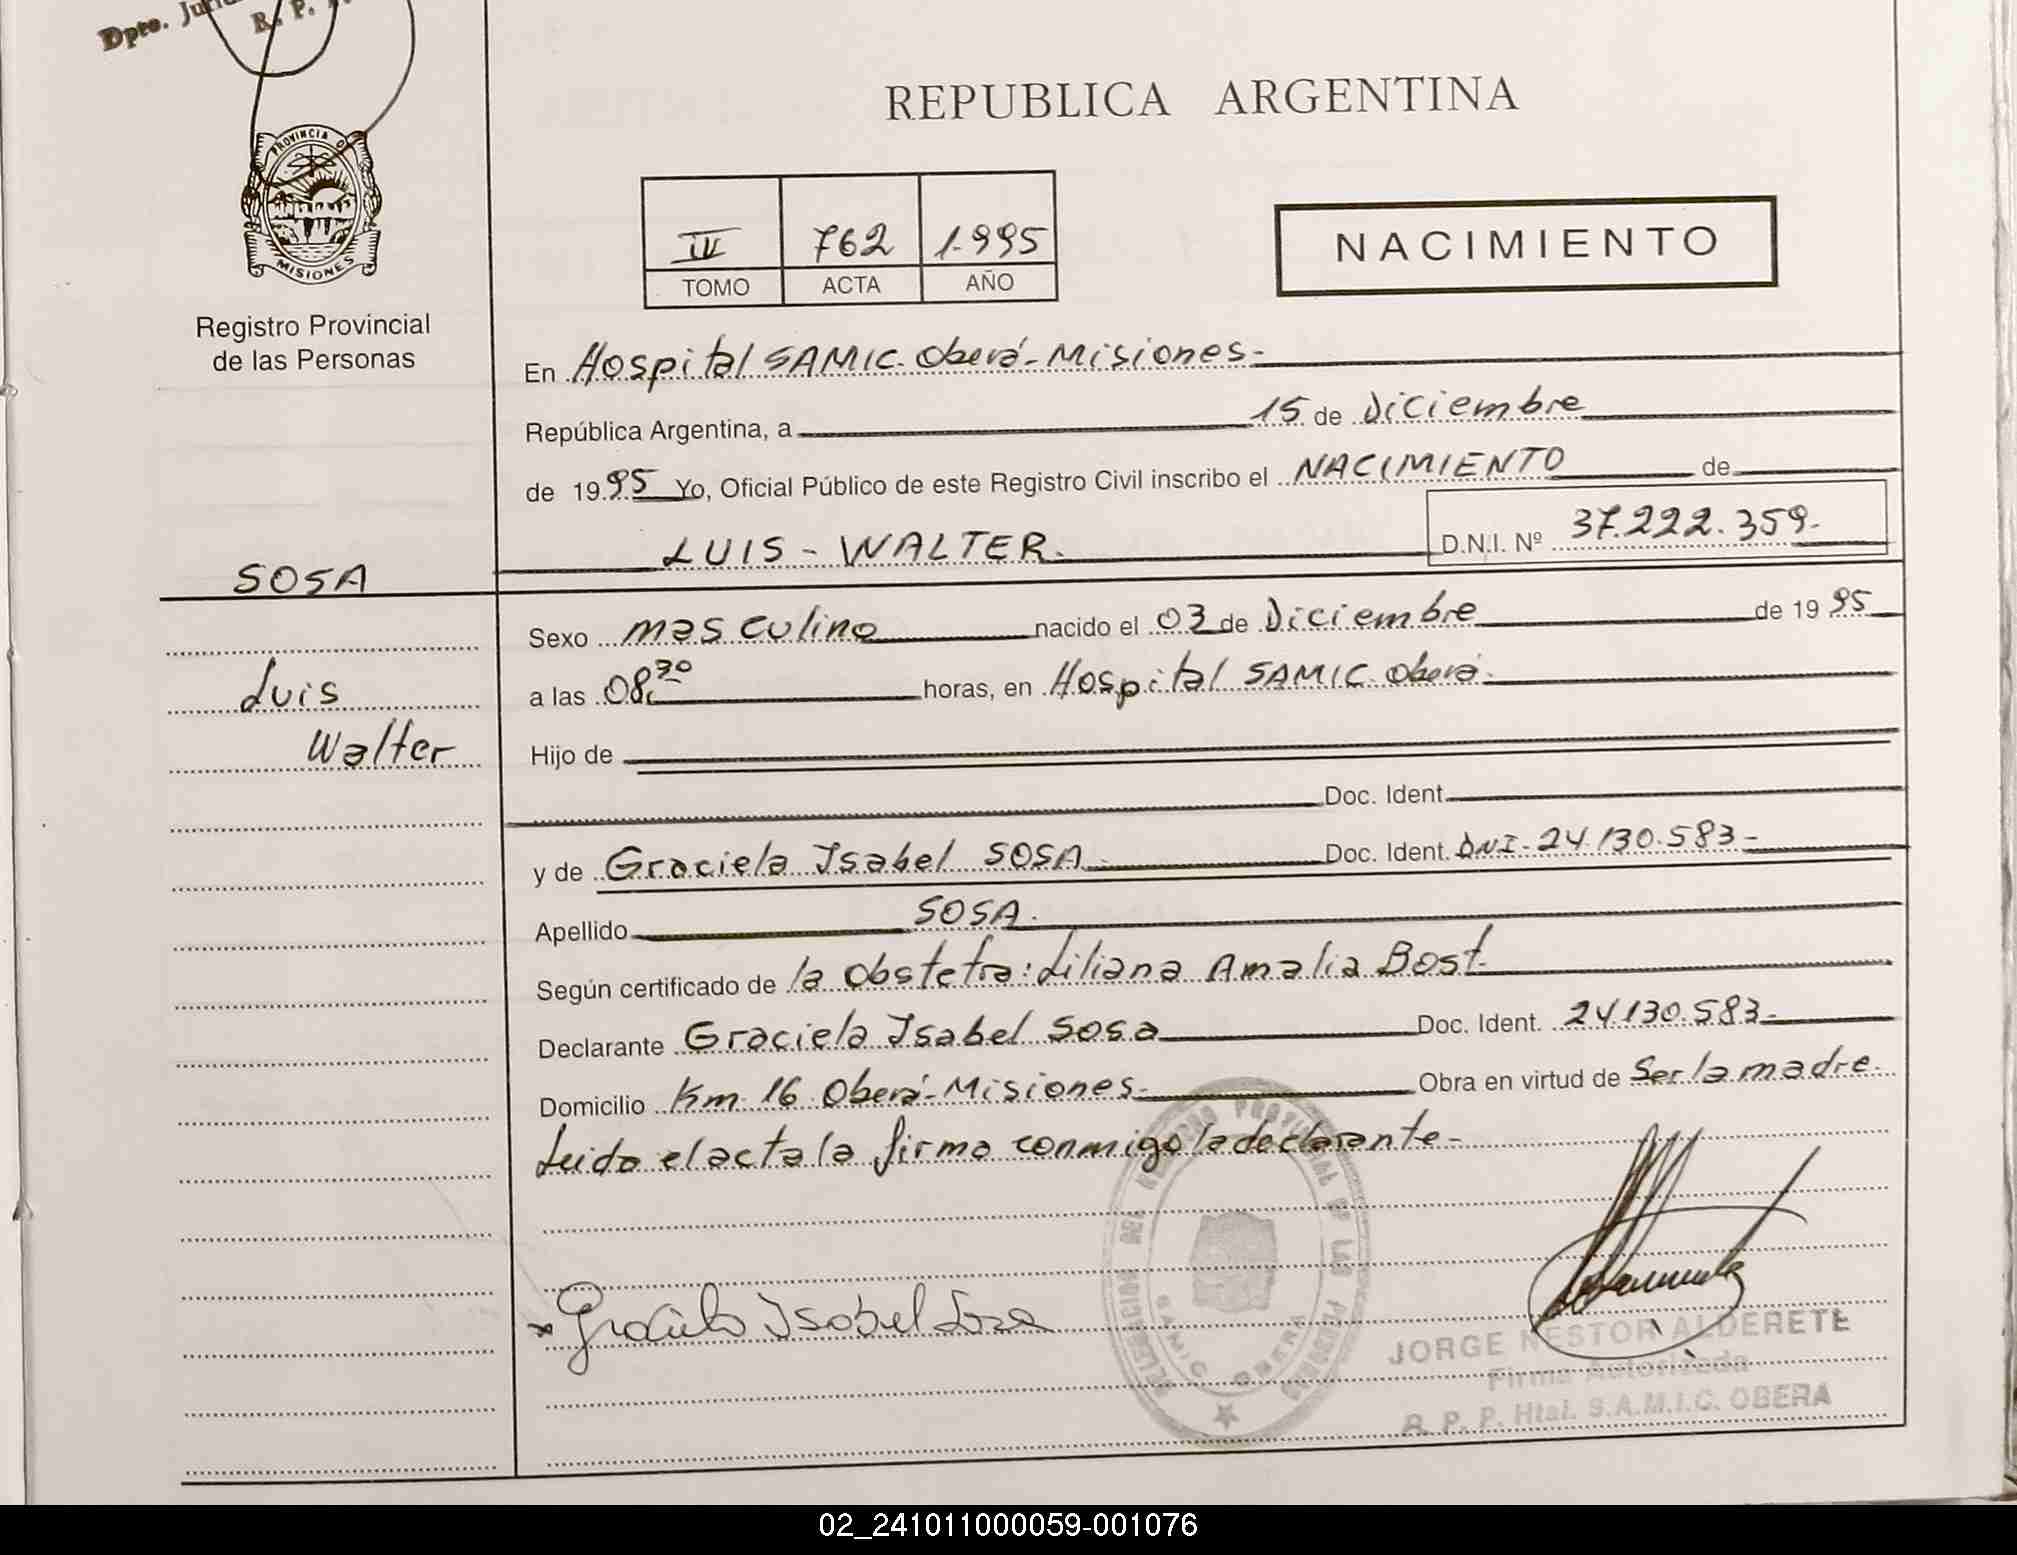 Dpto.
R. P.
PROVINCIA D
MISIONES
Registro Provincial
de las Personas
REPUBLICA ARGENTINA
IV 762 1.995
TOMO ACTA AÑO
NACIMIENTO
En Hospital SAMIC. Oberá - Misiones.-
República Argentina, a 15 de Diciembre
de 1995 Yo, Oficial Público de este Registro Civil inscribo el NACIMIENTO de
LUIS - WALTER. D.N.I. Nº 37.222.359.-
SOSA
Luis
Walter
Sexo masculino nacido el 03 de Diciembre de 1995
a las 08,30 horas, en Hospital SAMIC. Oberá.
Hijo de
Doc. Ident.
y de Graciela Isabel SOSA.- Doc. Ident. DNI- 24.130.583-
Apellido SOSA.
Según certificado de la obstetra: Liliana Amalia Bost.
Declarante Graciela Isabel Sosa Doc. Ident. 24.130.583-
Domicilio Km 16 Oberá - Misiones. Obra en virtud de Ser la madre.
Leida el acta la firma conmigo la declarante-
Graciela Isabel Sosa
DELEGACION DEL REGISTRO PROVINCIAL DE LAS PERSONAS
SAMIC OBERA
JORGE NESTOR ALDERETE
Firma Autorizada
R. P. P. Htal. S.A.M.I.C. OBERA
02_241011000059-001076